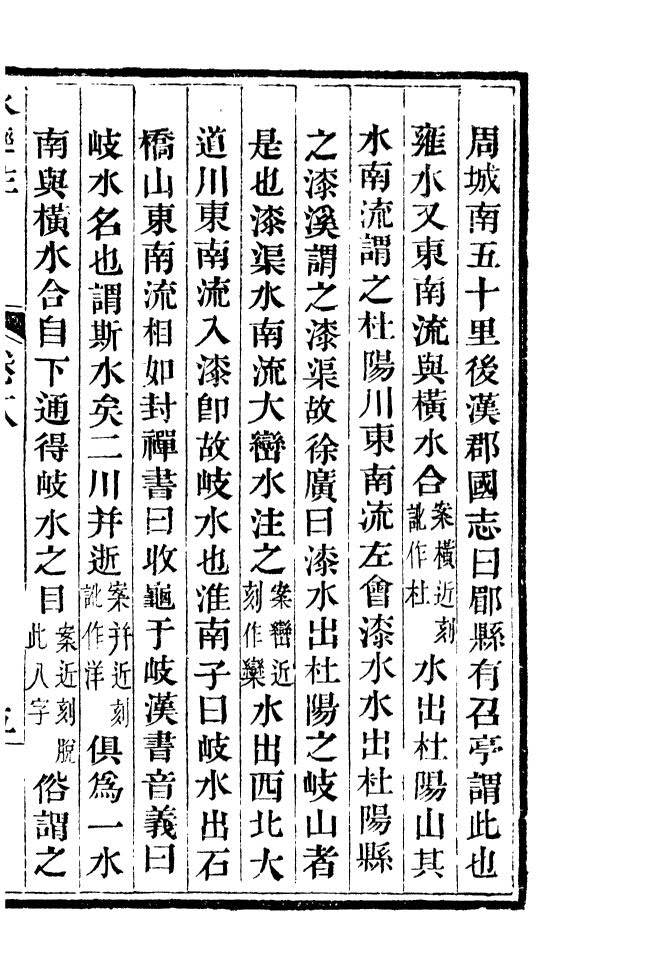 周城南五十里後漢郡國志曰郿縣有召亭謂此也
雍水又東南流與橫水合案橫近刻訛作杜水出杜陽山其
水南流謂之杜陽川東南流左會漆水水出杜陽縣
之漆溪謂之漆渠故徐廣曰漆水出杜陽之岐山者
是也漆渠水南流大巒水注之案巒近刻作欒水出西北大
道川東南流入漆卽故岐水也淮南子曰岐水出石
橋山東南流相如封禪書曰收龜于岐漢書音義曰
岐水名也謂斯水矣二川并逝案并近刻訛作洋俱為一水
南與橫水合自下通得岐水之目案近刻脫此八字俗謂之
水經注
卷十八